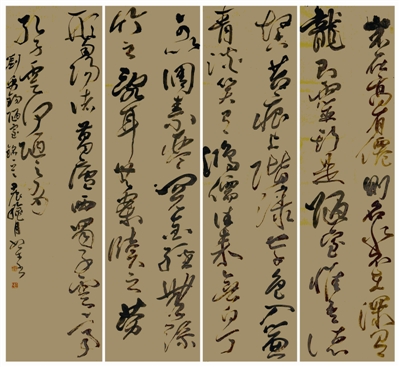 山不在高有僊則名水不在深有
龍則靈斯是陋室惟吾德
馨苔痕上階緑草色入簾
青談笑有鴻儒往來無白丁
可以調素琴閱金經無絲
竹之亂耳無案牘之勞
形南陽諸葛廬西蜀子雲亭
孔子雲何陋之有
劉禹錫陋室銘